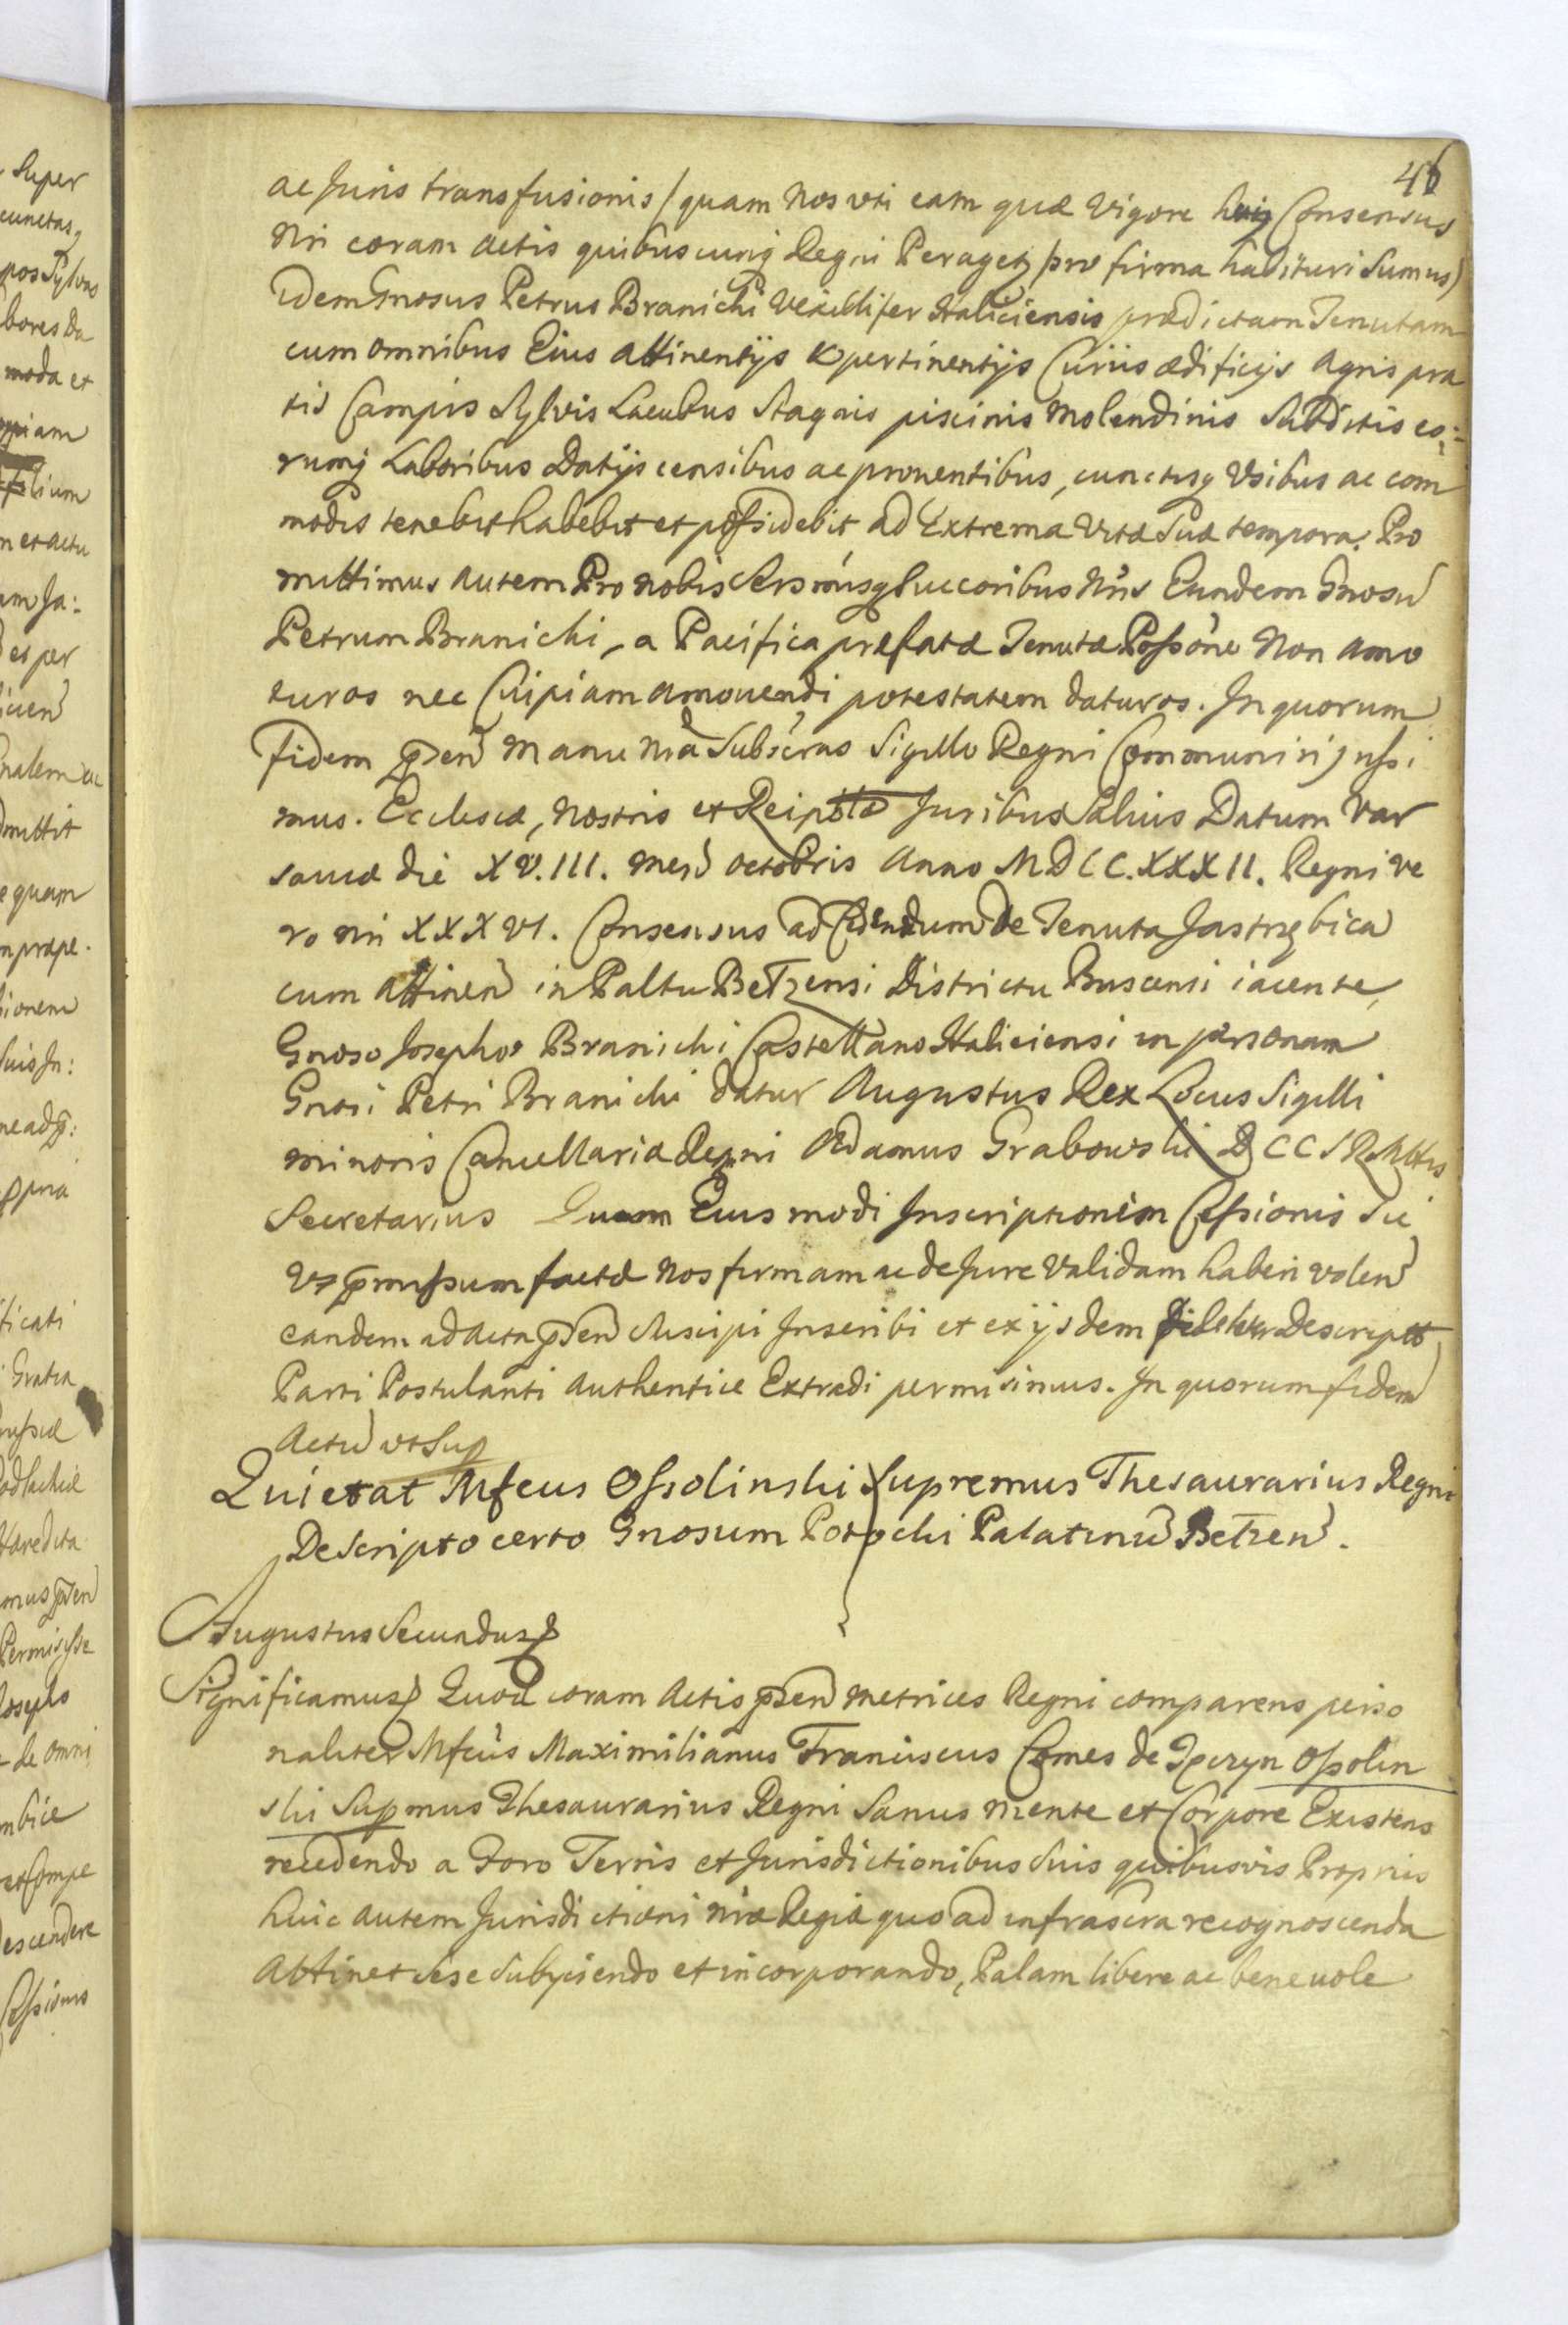 46
ac Juris transfusionis /quam Nos uti eam quæ Vigore huiꝰ Consensus
Nri coram actis quibuscunq Regni Peragetꝛ pro firma habituri Sumus)
idem Gnosus Petrus Branichi Vexillifer Haliciensis prædictam Tenutam
cum omnibus Eius attinentijs & pertinentijs Curiis ædificijs Agris pra
tis Campis Sylvis Lacubus Stagnis piscinis Molendinis Subditis eo:
rumq Laboribus Datijs censibus ac prouentibus, cunctisq Usibus ac com
modis tenebit habebit et possidebit ad Extrema Vitæ Suæ tempora. Pro
mittimus autem Pro nobis Srsmisq Succoribus Nris Eundem Gnosu
Petrum Branichi, a Pacifica præfatæ Tenutæ Possone Non amo
turos nec Cuipiam amouendi potestatem daturos. In quorum
fidem pñsen Manu Nra Subscras Sigillo Regni Communiri jussi
mus. Ecclesiæ, Nostris et Reipttæ Juribus Saluis Datum Var
sauiæ die XV.III. Mens Octobris Anno MDCC.XXXII. Regni ve
ro Nri XXXVI. Consensus ad Cedendum De Tenuta Jastrzębica
cum Attinen in Paltu Betzensi Districtu Buscensi iacente
Gnoso Josepho Branichi Castellano Haliciensi in personam
Gnosi Petri Branichi datur Augustus Rex Locus Sigilli
minoris Cancellariæ Regni Adamus Grabowski CCSRMttis
Secretarius Quam Eius modi Inscriptionem Cessionis sic
Vt pmissum factæ Nos firmam ac de Jure Validam haberi volen
eandem ad Acta pñsen Suscipi Inscribi et ex ijsdem fideliter Descriptt
Parti Postulanti Authentice Extradi permisimus. In quorum fidem
Actu ut Sup
Quietat Mfcus Ossolinski Supremus Thesaurarius Regni
Descripto certo Gnosum Potochi Palatinu Betzen.
Augustus Secundus
Significamus Quod coram Actis pñsen Metrices Regni comparens perso
naliter Mfcus Maximilianus Franciscus Comes de Tęczyn Ossolin
ski Supmus Thesaurarius Regni Sanus Mente et Corpore Existens
recedendo a Foro Terris et Jurisdictionibus Suis quibusvis Proprijs
huic autem Jurisdictioni Nræ Regiæ quo ad infrascra recognoscenda
Attinet Sese Subyciendo et incorporando, Palam libere ac beneuole